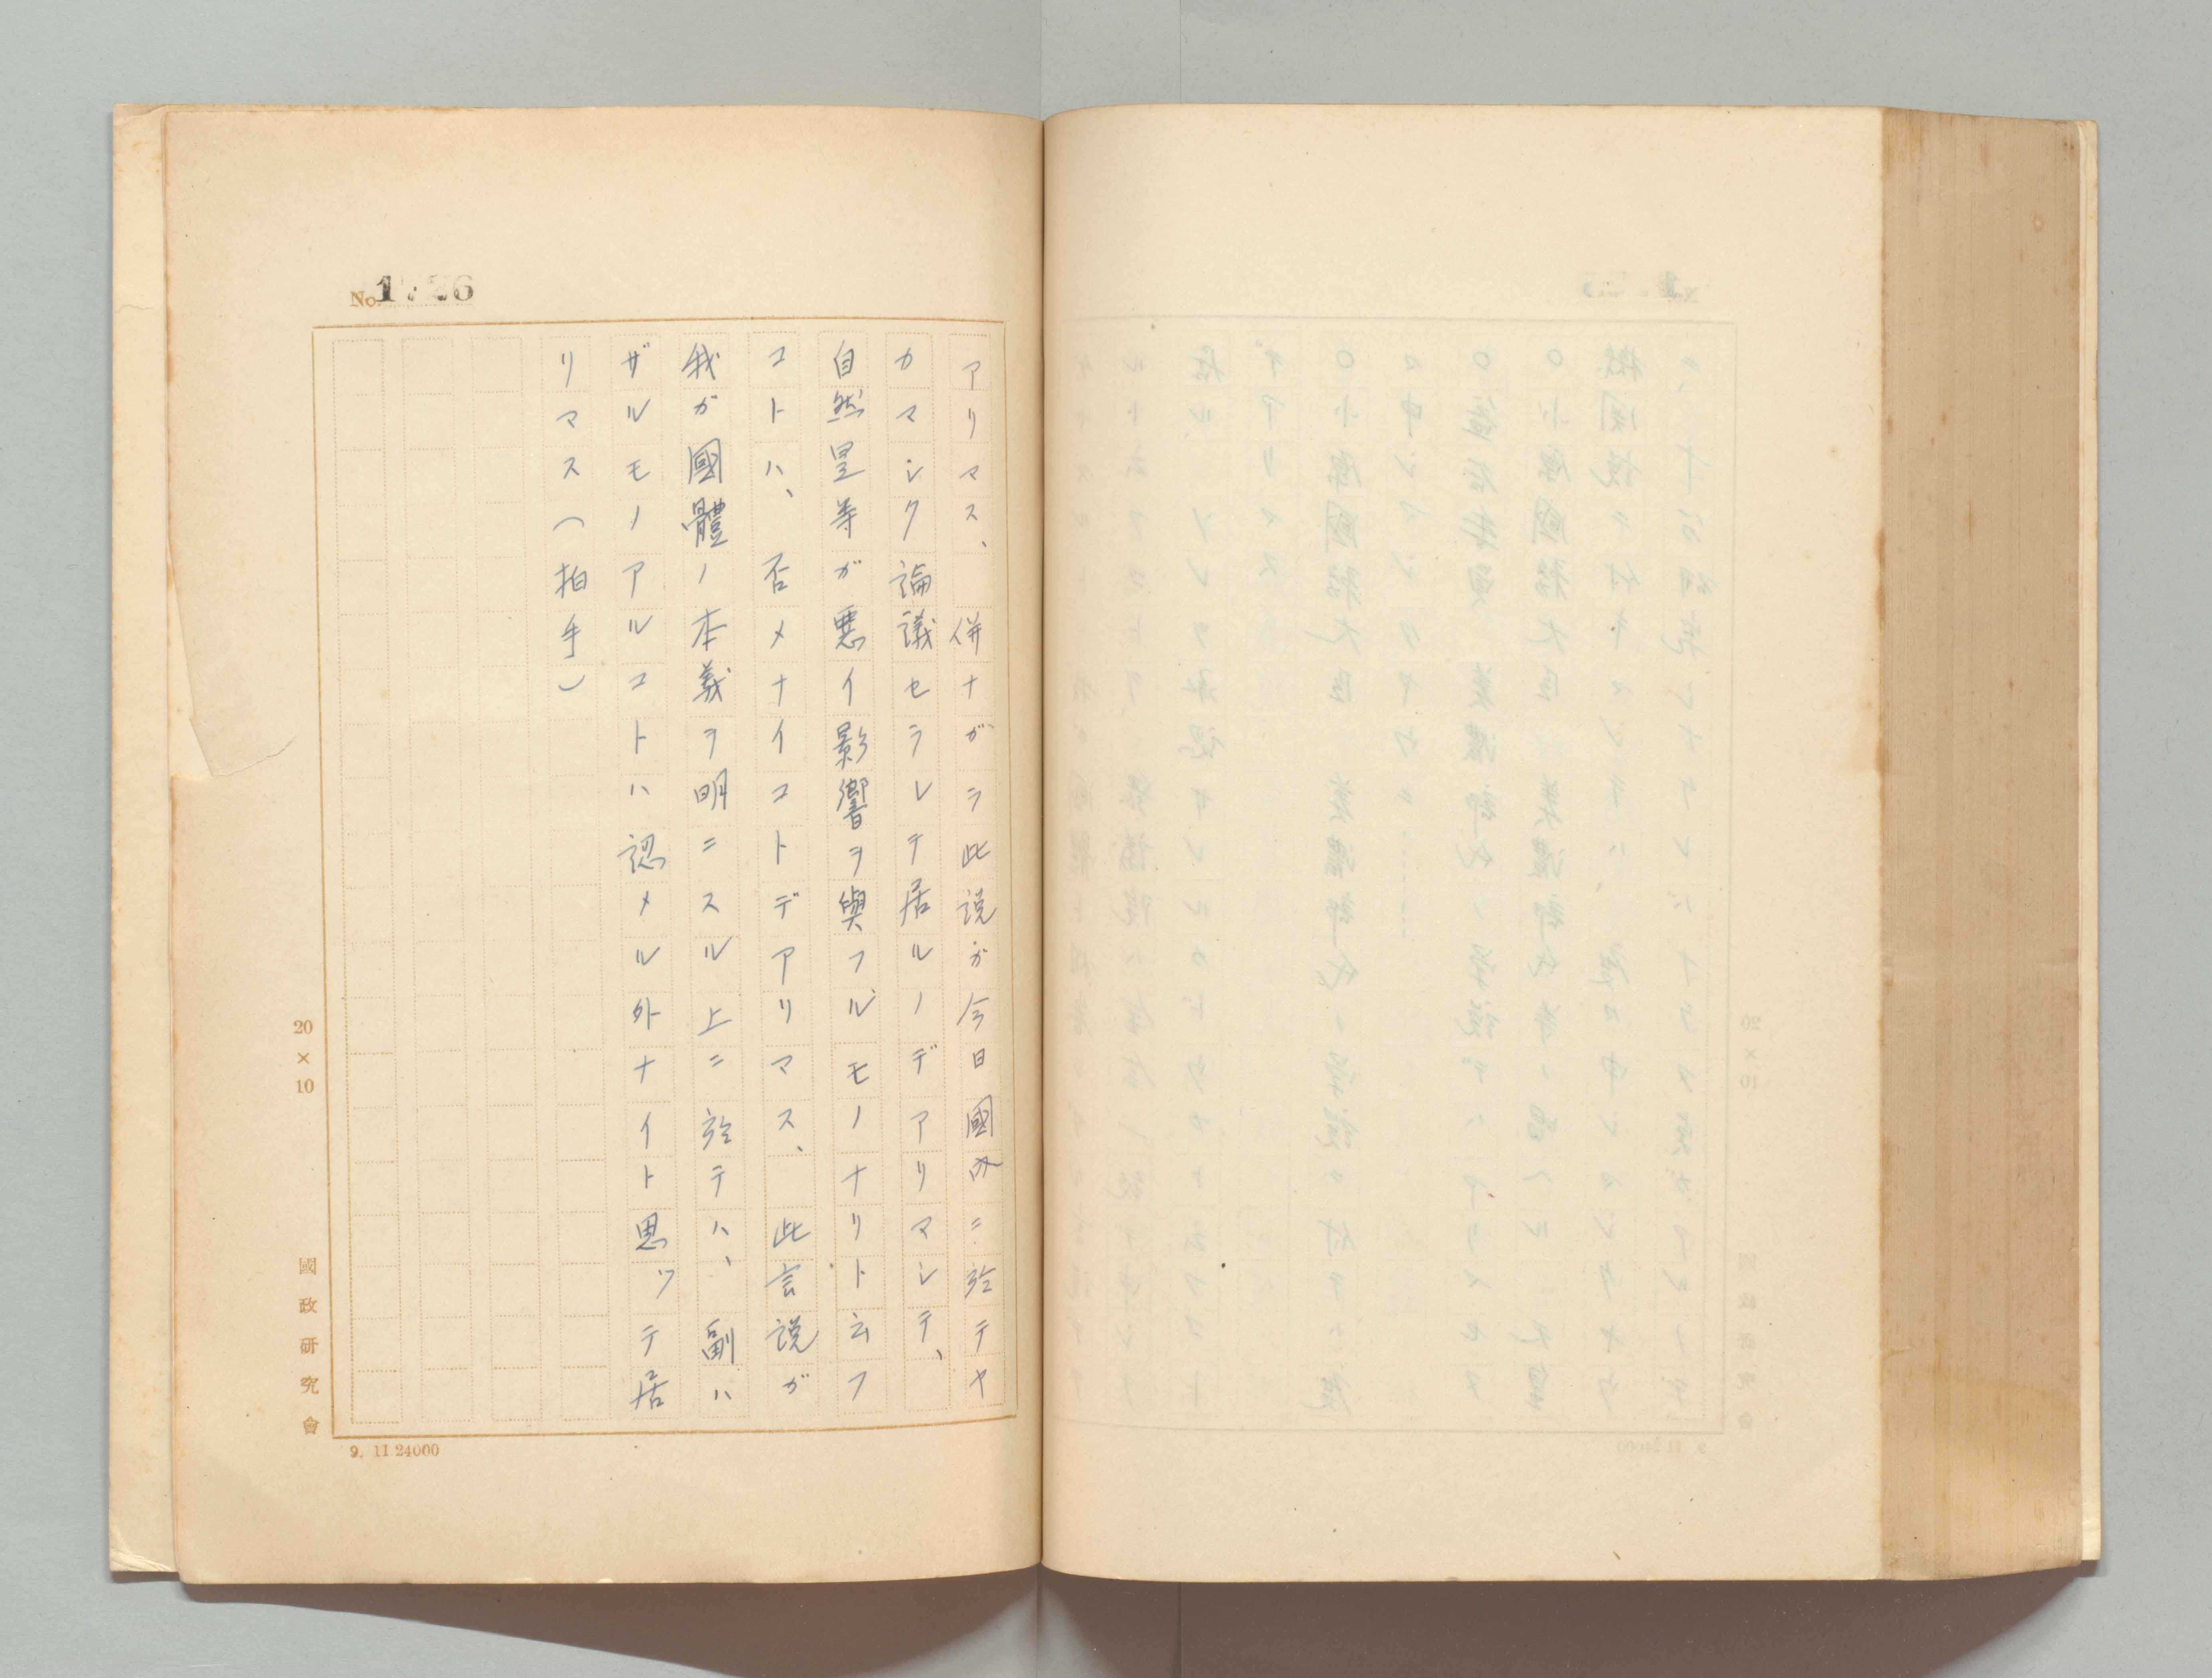 アリマス、併ナガラ此説ガ今日國内ニ於テヤ
カマシク論議セラレテ居ルノデアリマシテ、
自然是等ガ悪イ影響ヲ與フルモノナリト云フ
コトハ、否メナイコトデアリマス、此言説ガ
我ガ國體ノ本義ヲ明ニスル上ニ於テハ、副ハ
ザルモノアルコトハ認メル外ナイト思ツテ居
リマス(拍手)
20×10
國政研究會
9. 11 24000